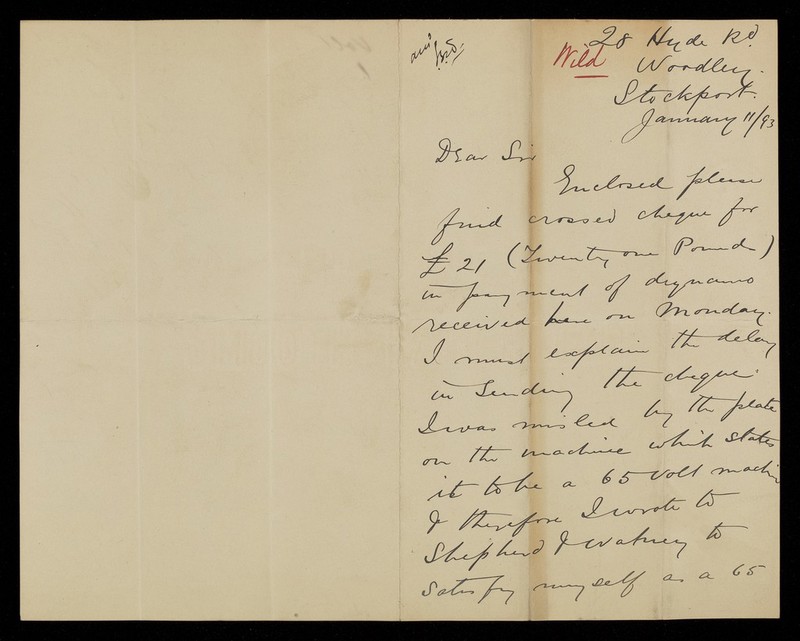 28 Hyde Rd.
Wild
Woodley.
Stockport.
January 11/93
Dear Sir
Enclosed please
find crossed cheque for
£21 (Twenty one Pounds)
in payment of dynamo
received here on Monday.
I must explain the delay
in sending the cheque
I was misled by the plate
on the machine which states
it to be a 65 volt machine
& therefore I wrote to
Shepherd & Watney to
satisfy myself as a 65